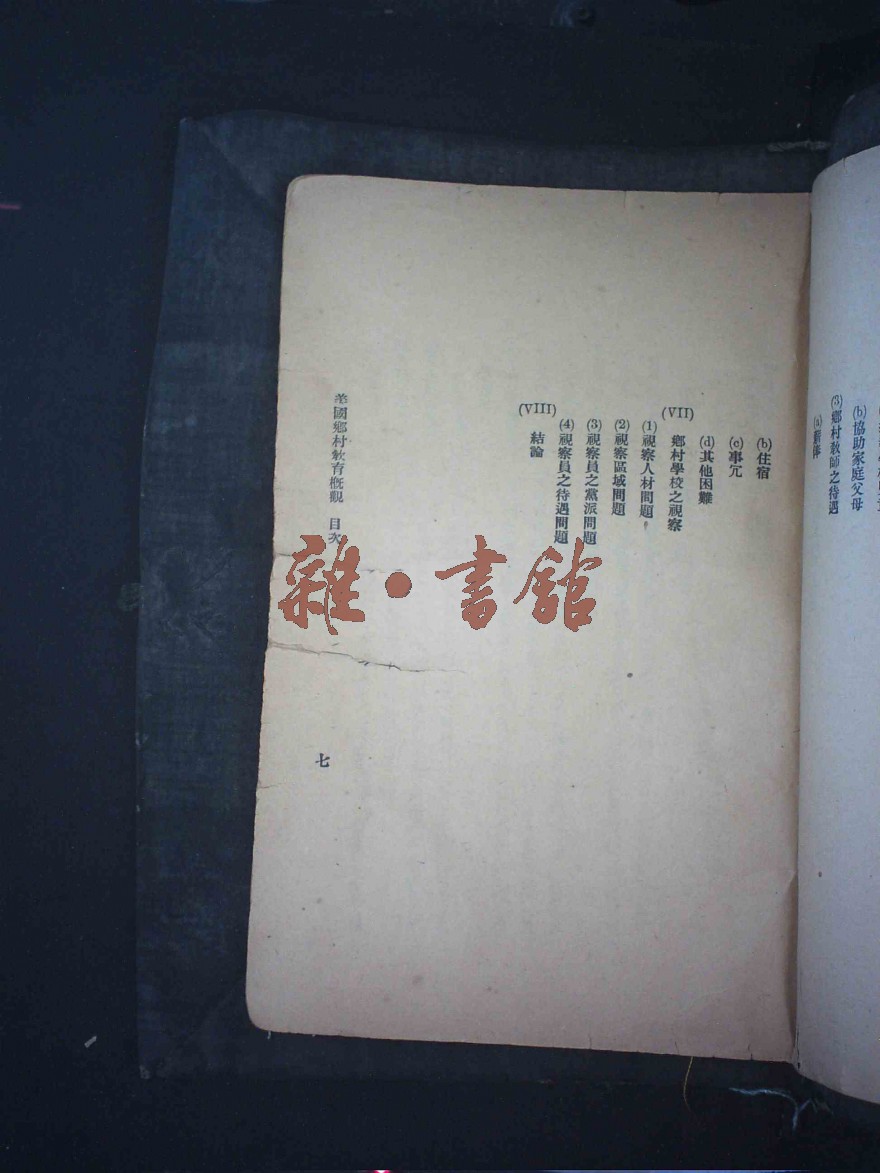 (b)協助家庭父母
(3)鄉村教師之待遇
(a)薪俸
(b)住宿
(c)事冗
(d)其他困難
(VII) 鄉村學校之視察
(1)視察人材問題
(2)視察區域問題
(3)視察員之黨派問題
(4)視察員之待遇問題
(VIII) 結論
美國鄉村教育概觀 目次
七
雜·書館